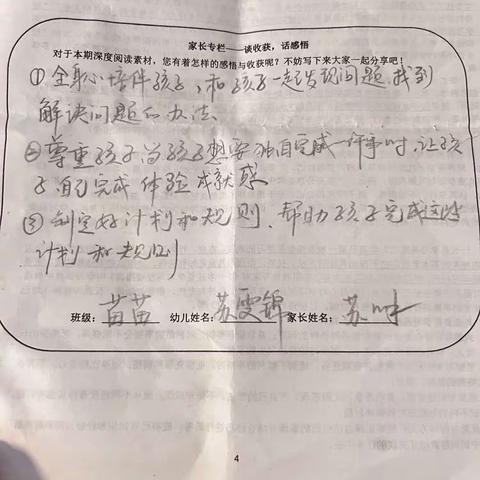 家长专栏——谈收获，话感悟
对于本期深度阅读素材，您有着怎样的感悟与收获呢？不妨写下来大家一起分享吧！
①全身心培伴孩子，和孩子一起发现问题.找到
解决问题的办法.
②尊重孩子当孩子想要独自完成一件事时.让孩
子自己完成 体验成就感
③制定好计划和规则、帮助孩子完成这些
计划和规则
班级：苗苗 幼儿姓名：苏雯锦 家长姓名：苏
4